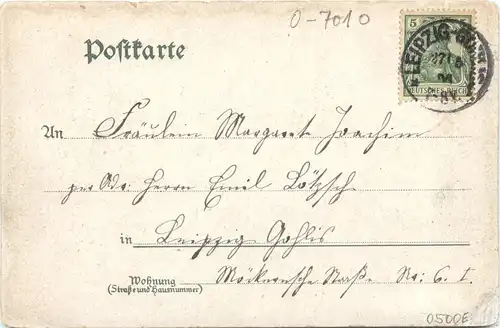 0-7010
5
LEIPZIG-GOHLIS
DEUTSCHES REICH
Postkarte
An Fräulein Margarete Joachim
per Adr: Herrn Emil Lötzsch
in Leipzig Gohlis
Wohnung
(Straße und Hausnummer)
Möckernsche Straße Nr: 6. I.
0500E